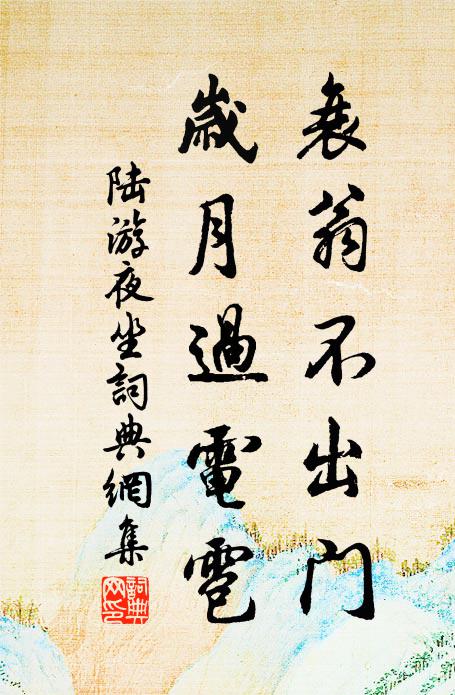 衰翁不出門
歲月過電雹
陆游夜坐詞典網集